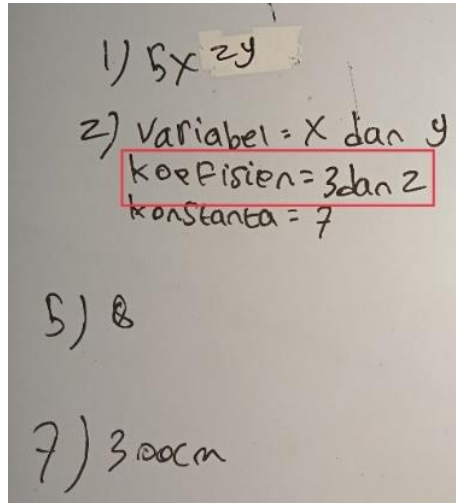 1) 5x 2y
2) Variabel = x dan y
koefisien = 3 dan 2
konstanta = 7
5) 8
7) 300cm